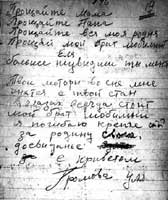 Прощайте Мама
Прощайте Папа
Прощайте вся моя родня
Прощай мой брат любимый
Еля
больше неувидиш ты меня
Твои моторы во сне мне
снятся твой стан
в глазах всегда стоит
Мой брат любимый
я погибаю крепче стой
за родину свою
досвидание
с приветом
Громова Уля